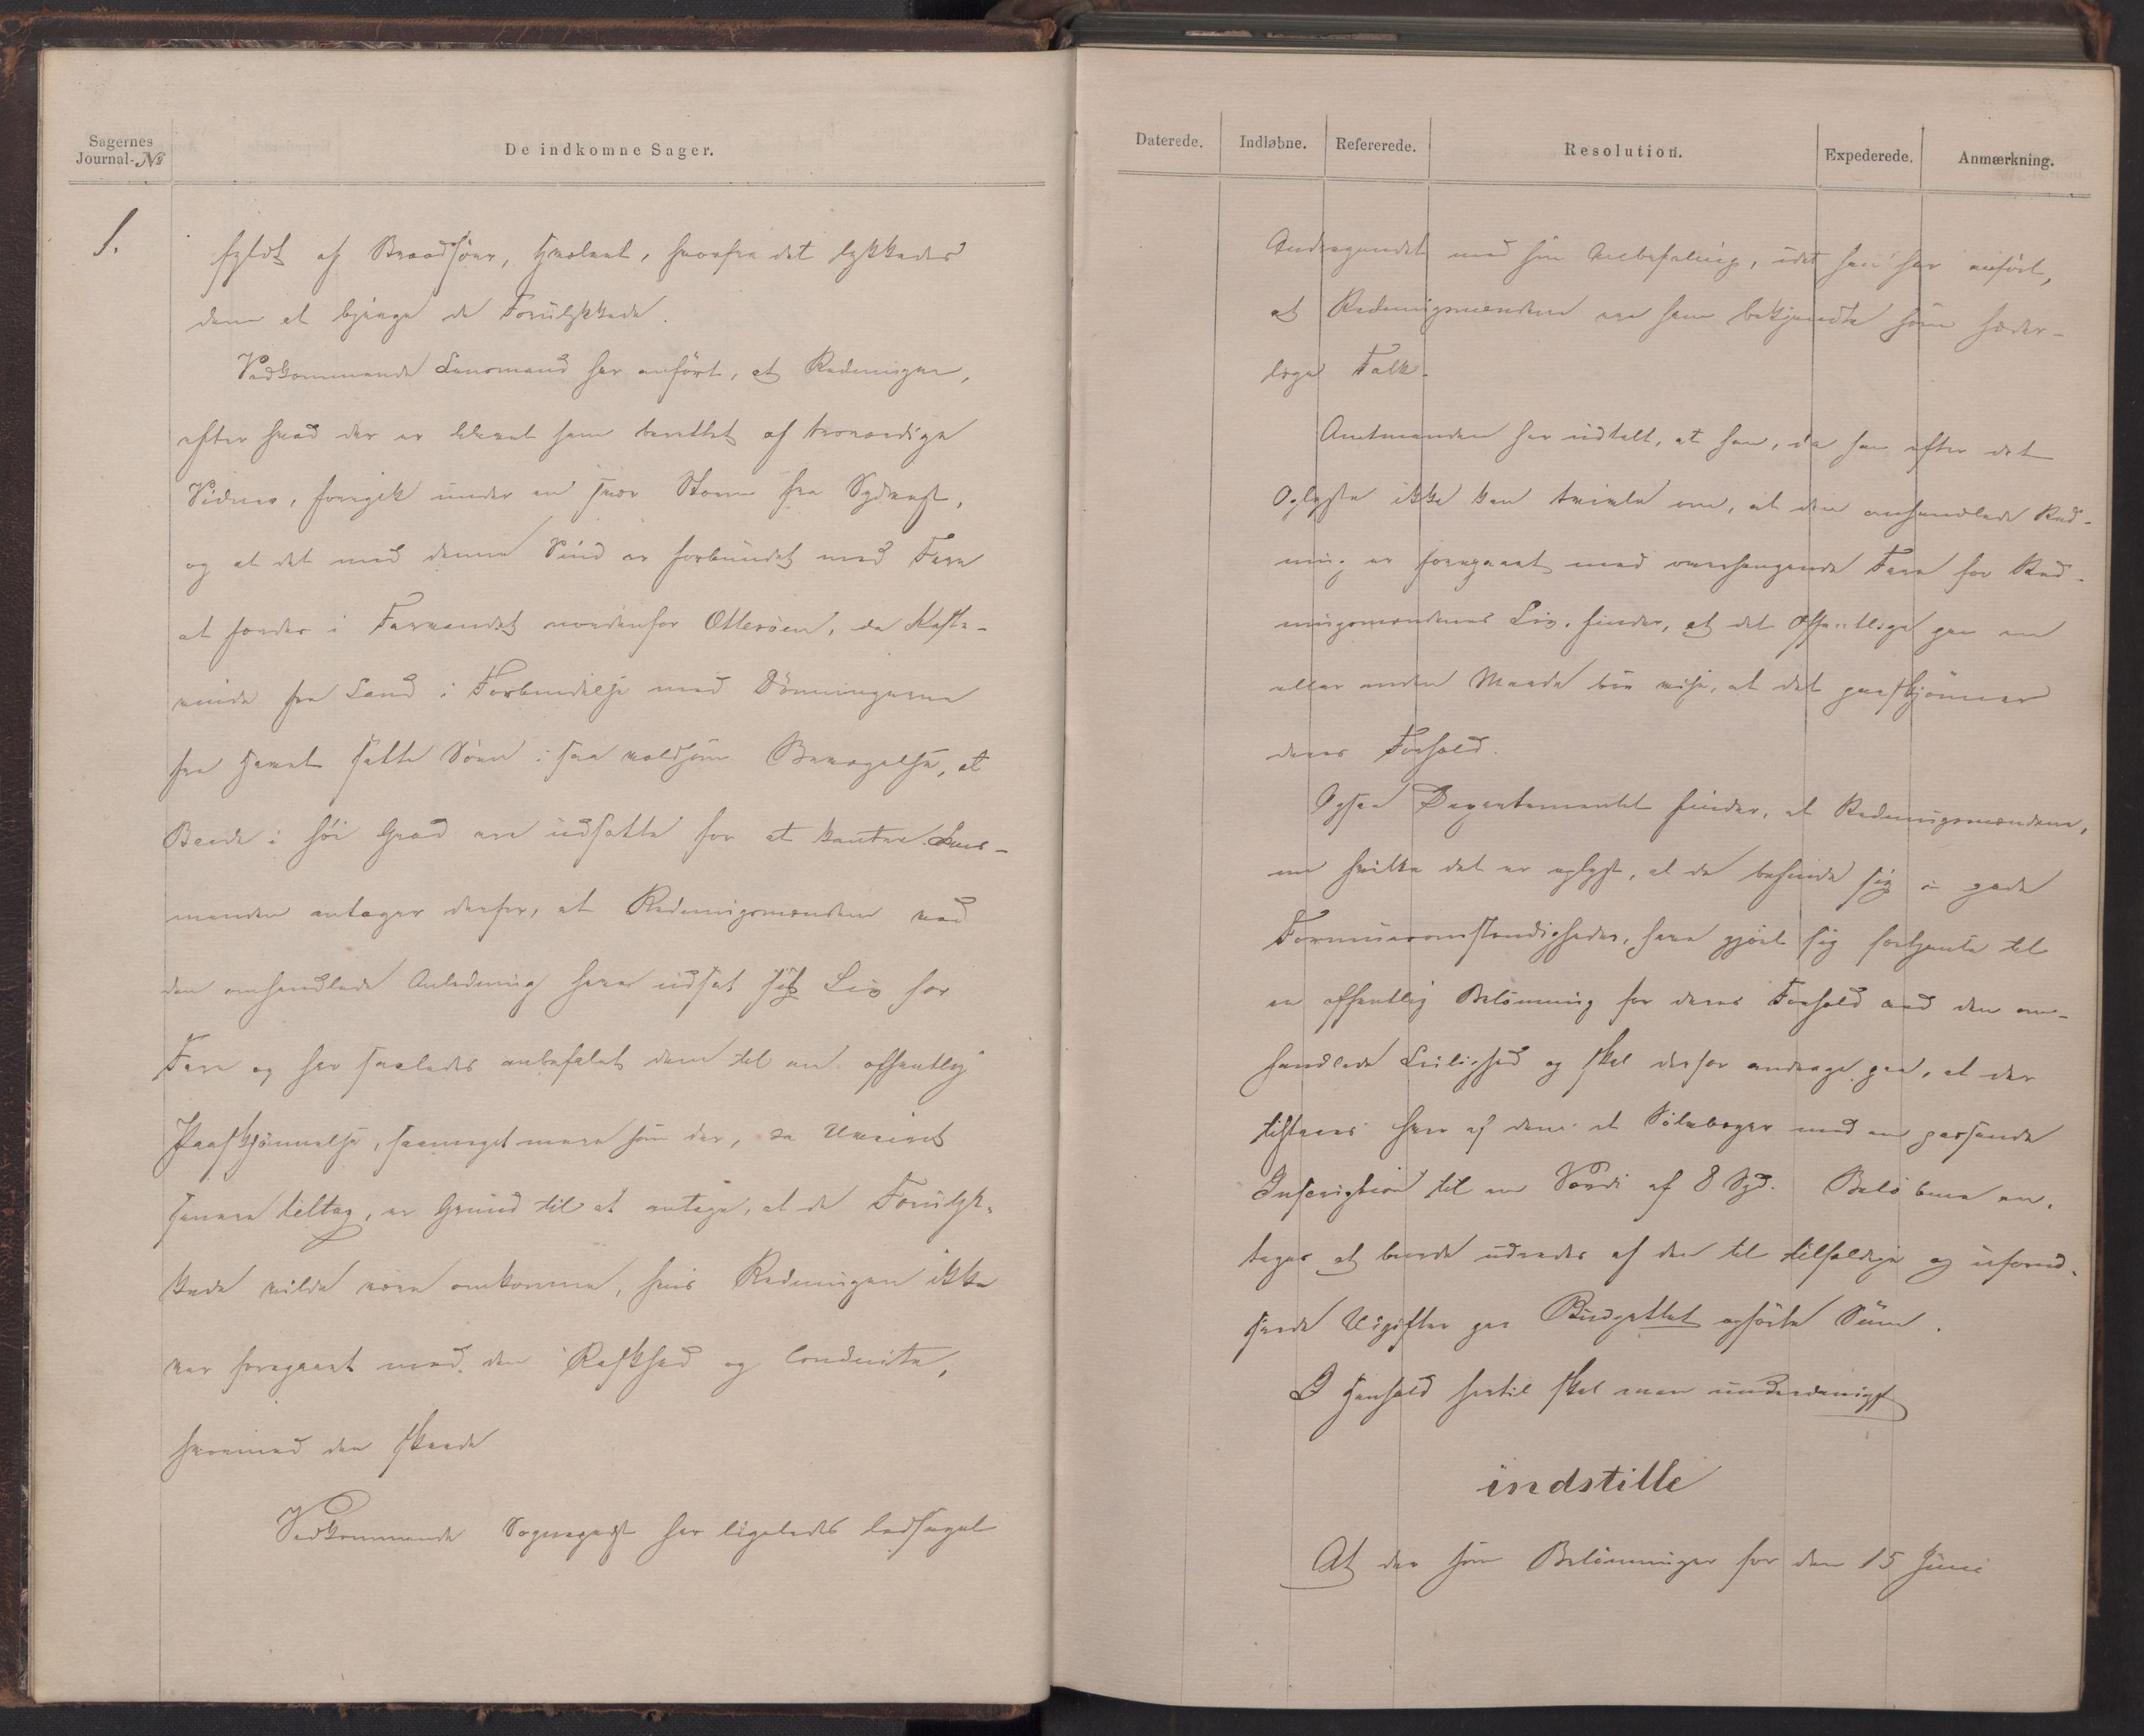 Sagernes
Journal-№
De indkomne Sager.
1.
fyldt af Braadsöer, hvælvet, hvorfra det lykkedes
dem at bjerge de Forulykkede.
Vedkommende Lensmand har anført, at Redningen,
efter hvad der er blevet ham berettet af troværdige
Vidner, foregik under en svær Storm fra Sydvest,
og at det med denne Vind er forbundet med Fare
at færdes i Farvandet nordenfor Otterøen, da Kaste-
vinde fra Land i Forbindelse med Dönningerne
fra Havet sætte Söen i saa voldsom Bevægelse, at
Baade i høi Grad ere udsatte for at kantre. Lens-
manden antager derfor, at Redningsmændene ved
den omhandlede Anledning have udsat sit Liv for
Fare og har saaledes anbefalet dem til en offentlig
Paaskjönnelse, saameget mere som der, da Uveiret
senere tiltog, er Grund til at antage, at de Forulyk-
kede vilde være omkomne, hvis Redningen ikke
var foregaaet med den Raskhed og Conduite,
hvormed den skede
Vedkommende Sogneprest har ligeledes ledsaget
Daterede.
Indløbne.
Refererede.
Resolution.
Expederede.
Anmærkning.
Andragendet med sin Anbefaling, idet han har anført,
at Redningsmændene ere ham bekjendte som hæder-
lige Folk.
Amtmanden har udtalt, at han, da han efter det
Oplyste ikke kan tvivle om, at den omhandlede Red-
ning er foregaaet med overhængende Fare for Red-
ningsmændenes Liv, finder, at det Offentlige paa en
eller anden Maade bør vise, at det paaskjönner
deres Forhold.
Ogsaa Departementet finder, at Redningsmændene,
om hvilke det er oplyst, at de befinde sig i gode
Formuesomstændigheder, have gjort sig fortjente til
en offentlig Belönning for deres Forhold ved den om-
handlede Leilighed og skal derfor andrage paa, at der
tilstaaes hver af dem et Sölvbæger med en passende
Inscription til en Værdi af 8 Spd. Belöbene an-
tages at burde udredes af den til tilfældige og uforud-
seede Udgifter paa Budgettet opførte Sum.
I Henhold hertil skal man underdanigst
indstille
At der som Belönninger for den 15 Juni